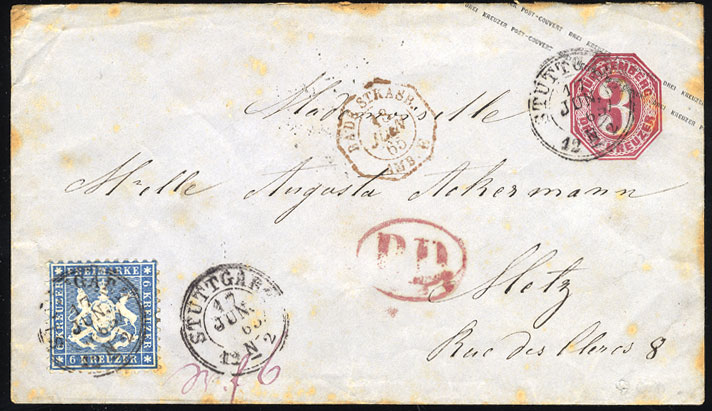 DREI KREUZER POST-COUVERT DREI KREUZER POST-COUVERT DREI KREUZER
WÜRTTEMBERG
3
DREI KREUZER
STUTTGART
17
JUN.
65
12
BADE STRASB.
JUIN
65
AMB.
Mademoiselle
Mselle Augusta Ackermann
P.D.
Metz
Rue des Clercs 8
FREIMARKE
6 KREUZER
6 KREUZER
6 KREUZER
STUTTGART
17
JUN.
65
12 N 2
f 6